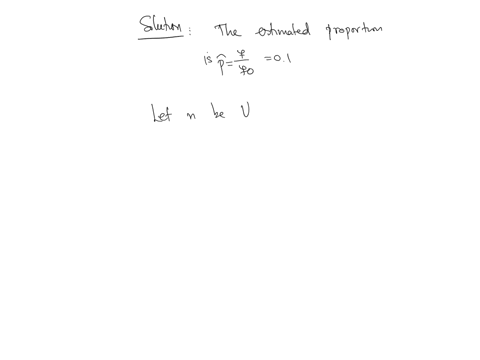 Solution : The estimated proportion
is p̂ = 4/40 = 0.1
Let n be U